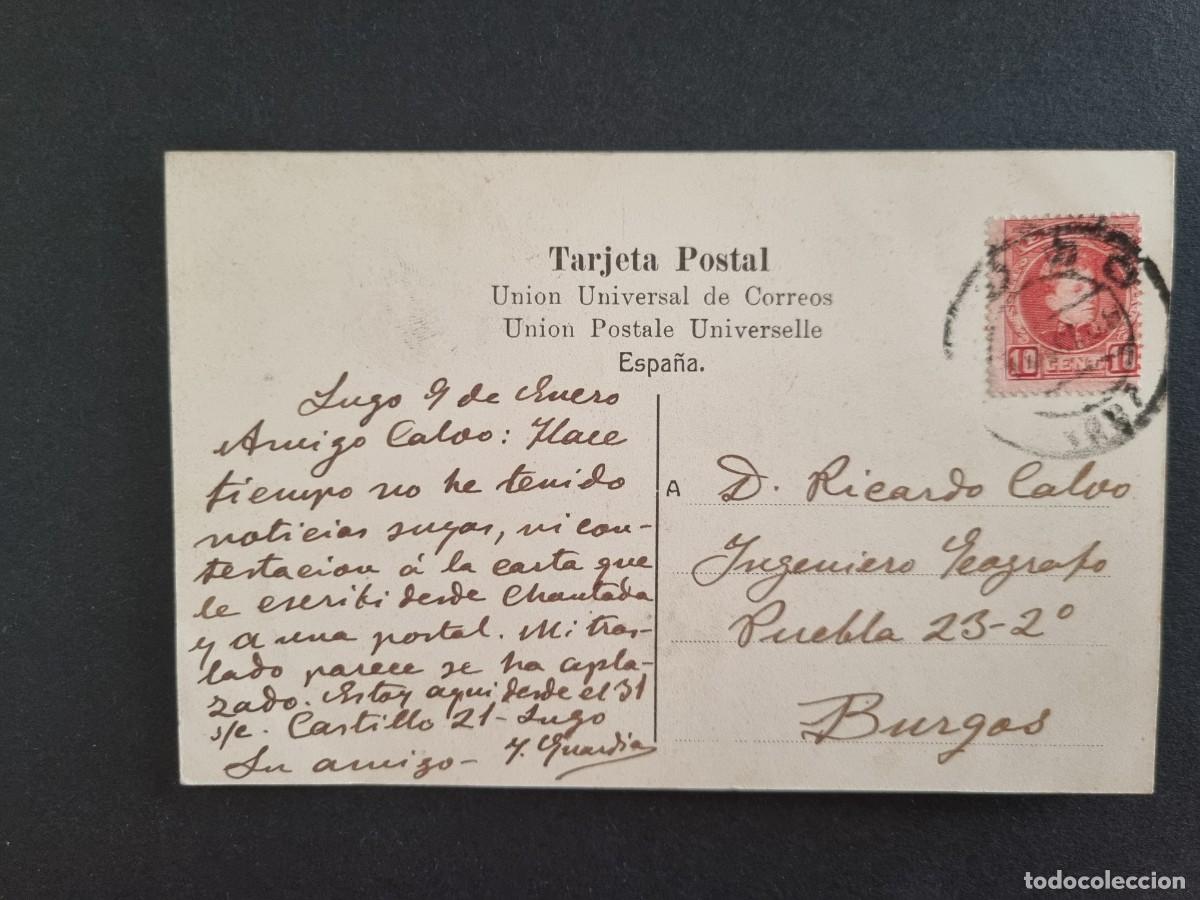 Tarjeta Postal
Union Universal de Correos
Union Postale Universelle
España.
Lugo 9 de Enero
Amigo Calvo: Hace
tiempo no he tenido
noticias suyas, ni con-
testacion á la carta que
le escribi desde Chantada
y a una postal. Mi tras-
lado parece se ha apla-
zado. Estoy aqui desde el 31
s/c. Castillo 21 - Lugo
Su amigo - J. Guardia
A D. Ricardo Calvo
Ingeniero Geografo
Puebla 23-2º
Burgos
10 CENT. 10
todocoleccion